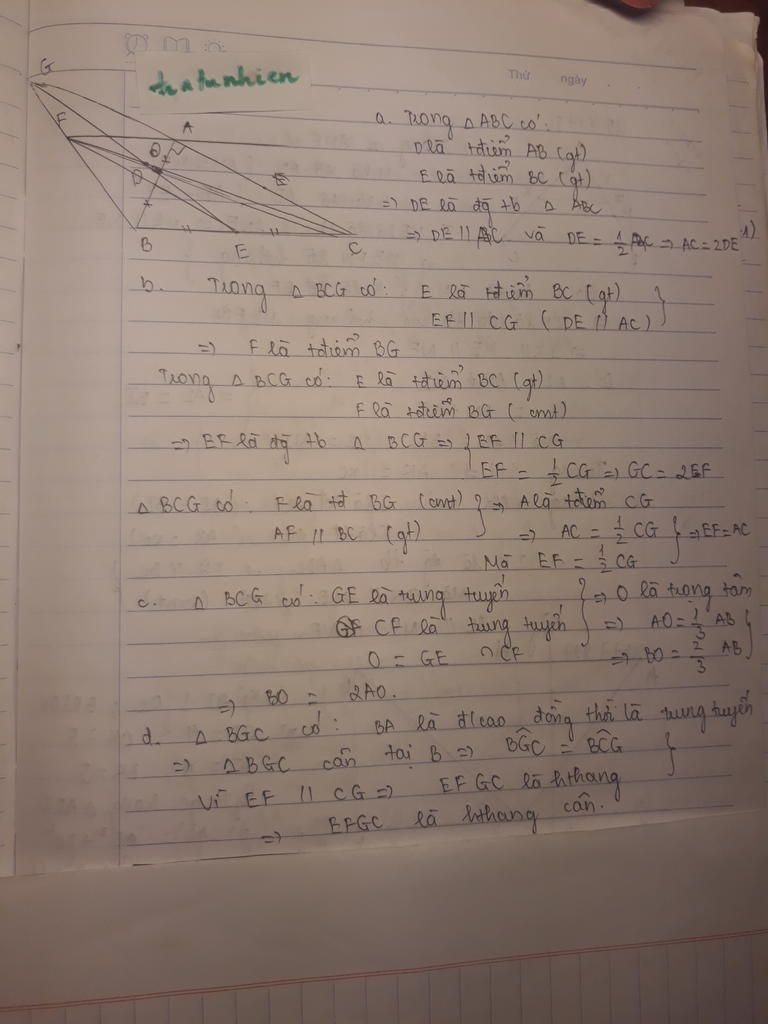 Thứ ngày
thatunhien
G
F
A
O
D
E
B
E
C
a. Trong △ABC có:
D là tđiểm AB (gt)
E là tđiểm BC (gt)
=> DE là đg tb △ ABC
=> DE // AC và DE = 1/2 AC => AC = 2DE
b. Trong △ BCG có: E là tđiểm BC (gt)
EF // CG ( DE // AC)
=> F là tđiểm BG
Trong △ BCG có: E là tđiểm BC (gt)
F là tđiểm BG ( cmt)
=> EF là đg tb △ BCG => EF // CG
EF = 1/2 CG => GC = 2EF
△ BCG có: F là tđ BG (cmt) => A là tđiểm CG
AF // BC (gt) => AC = 1/2 CG => EF = AC
Mà EF = 1/2 CG
c. △ BCG có: GE là trung tuyến => O là trọng tâm
CF là trung tuyến => AO = 1/3 AB
O = GE ∩ CF => BO = 2/3 AB
=> BO = 2AO.
d. △ BGC có: BA là đ/cao đồng thời là trung tuyến
=> △ BGC cân tại B => BĜC = BĈG
Vì EF // CG => EFGC là hthang
=> EFGC là hthang cân.